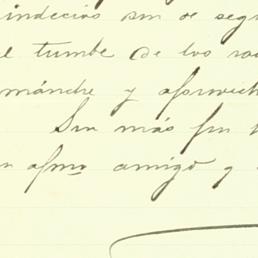 indecios sin de segu
el tumbe de los ro
mándre y aforvech
Sin más fin
n afmo amigo y